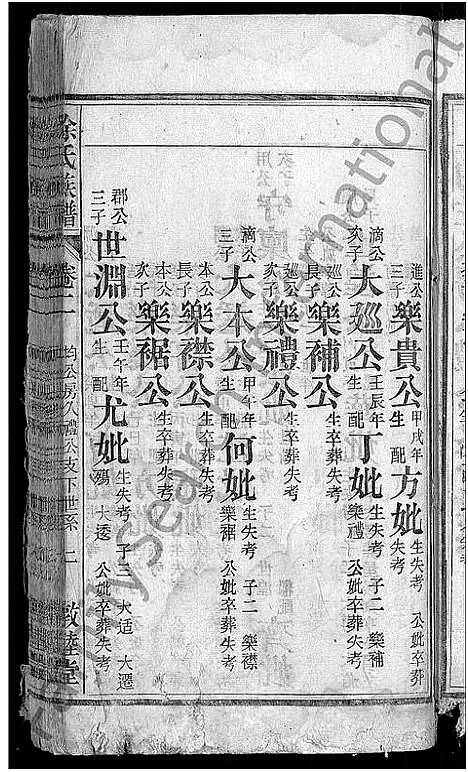 進公三子樂貴公 甲戌年生 配方妣 生失考 公妣卒葬失考
滴公次子大廵公 壬辰年生 配丁妣 生失考 子二 樂補 樂禮 公妣卒葬失考
廵公長子樂補公 生卒葬失考
廵公次子樂禮公 生卒葬失考
滴公三子大本公 甲午年生 配何妣 生失考 子二 樂襟 樂裾 公妣卒葬失考
本公長子樂襟公 生卒葬失考
本公次子樂裾公 生卒葬失考
郡公三子世淵公 壬午年生 配尤妣 生失考 子三 大适 大遷殤 大透 公妣卒葬失考
徐氏族譜 卷二 均公房久禮公支下世系 二 敦睦堂